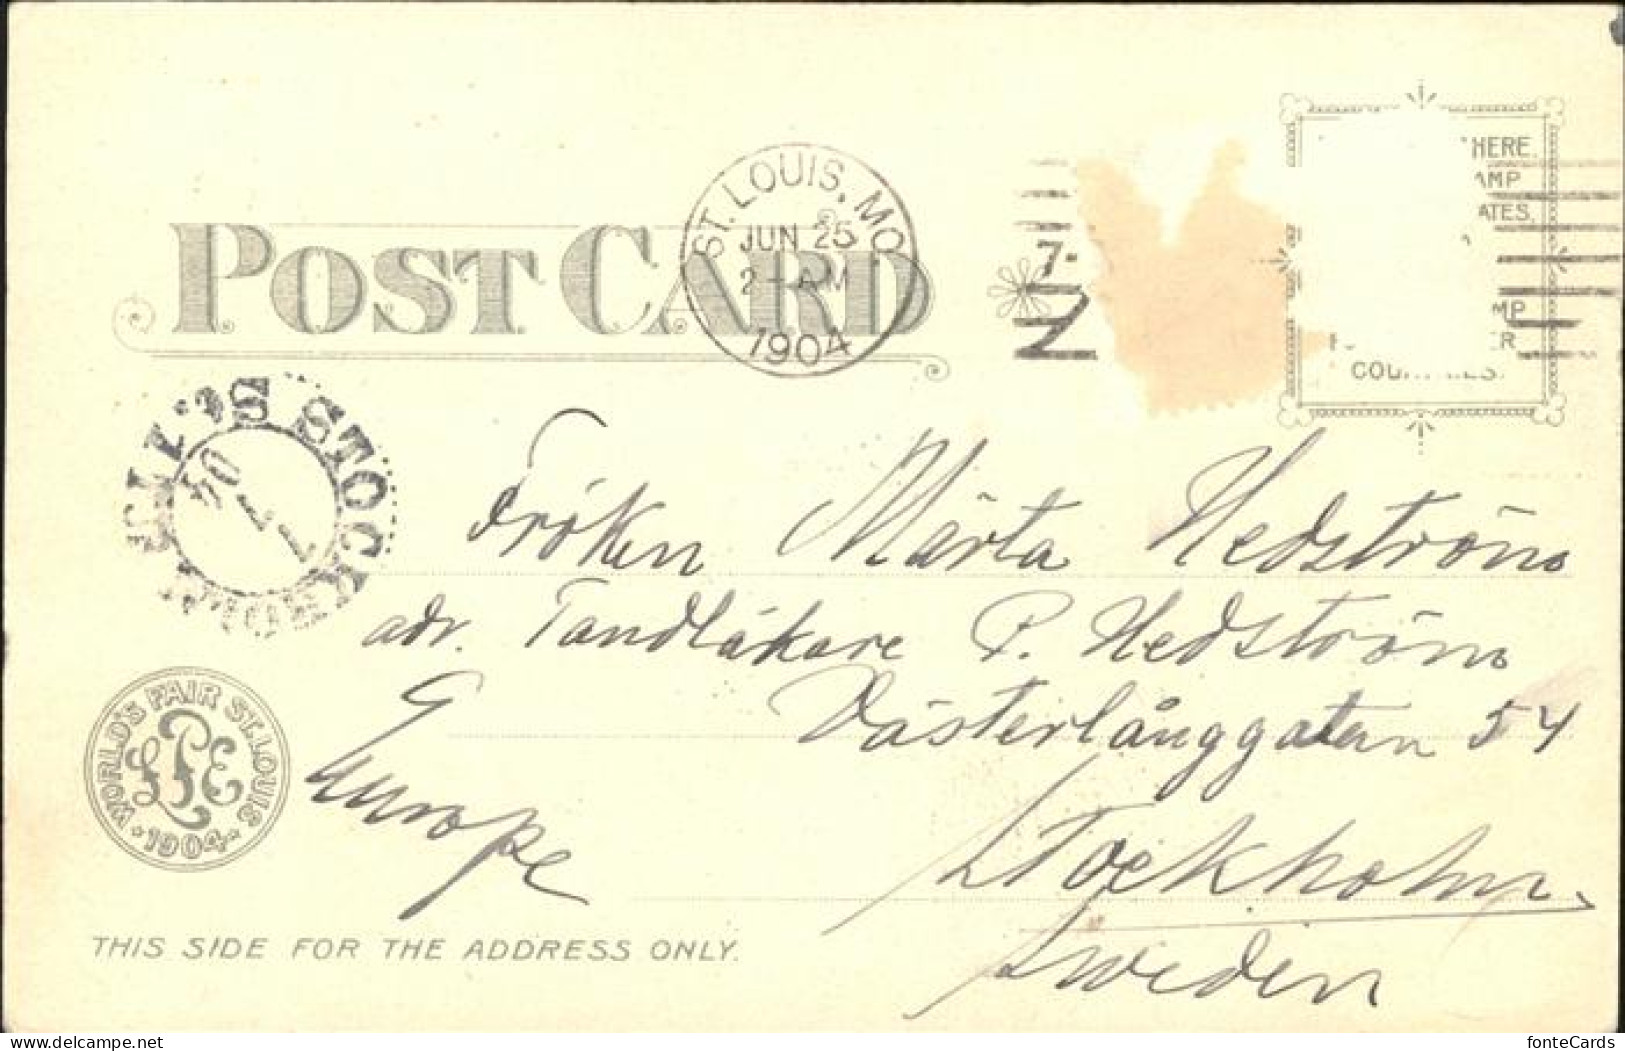 POST CARD
ST. LOUIS, MO
JUN 25
2 - AM
1904
7-
HERE.
AMP
ATES,
MP
ER
STOCK
04
7
Fröken Märta Hedström
adr. Tandläkare P. Hedström
Västerlånggatan 54
Europe
Stockholm
Sweden
WORLD'S FAIR ST. LOUIS
LPE
1904
THIS SIDE FOR THE ADDRESS ONLY.
https://www.delcampe.net
fonteCards